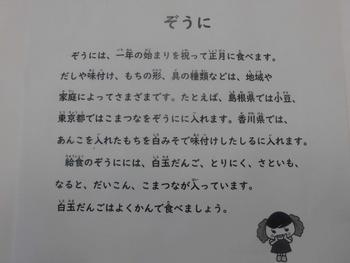 ぞうに
ぞうには、一年の始まりを祝って正月に食べます。
だしや味付け、もちの形、具の種類などは、地域や
家庭によってさまざまです。たとえば、島根県では小豆、
東京都ではこまつなをぞうにに入れます。香川県では、
あんこを入れたもちを白みそで味付けしたしるに入れます。
給食のぞうにには、白玉だんご、とりにく、さといも、
なると、だいこん、こまつなが入っています。
白玉だんごはよくかんで食べましょう。